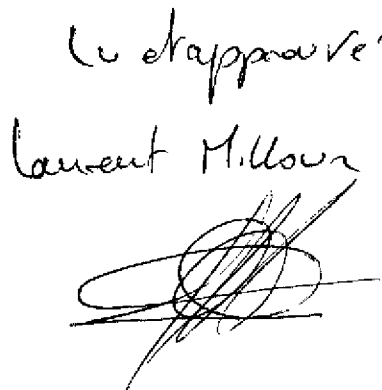 Lu et approuvé
Laurent Millour